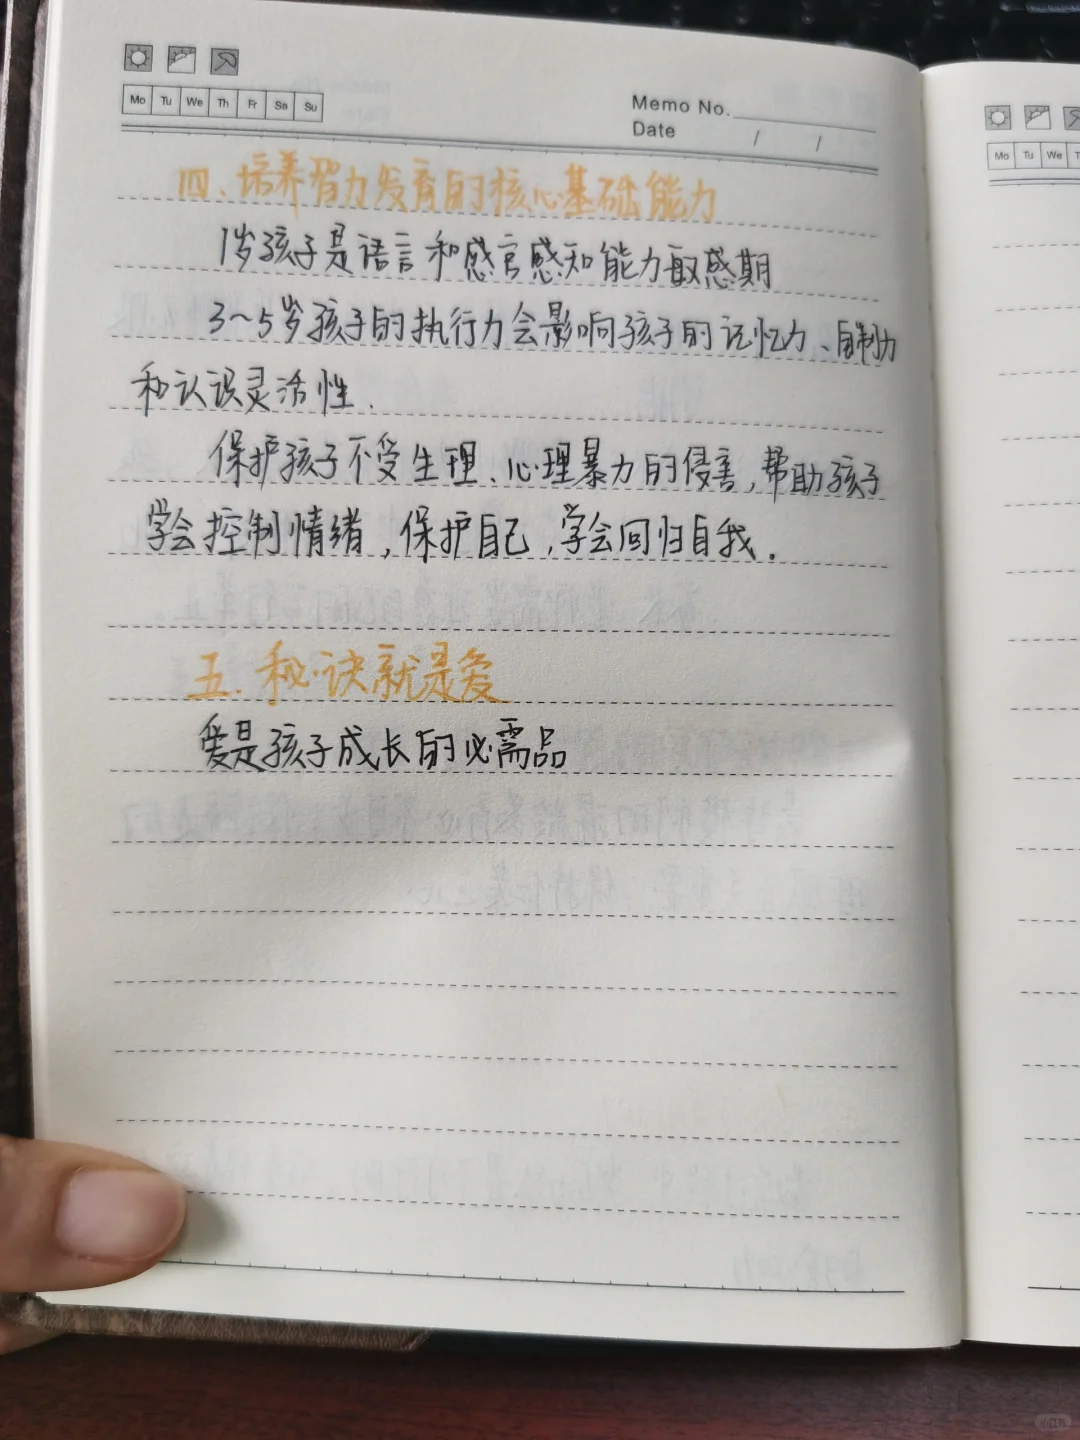 Mo Tu We Th Fr Sa Su
Memo No.
Date / /
四、培养智力发育的核心基础能力
1岁孩子是语言和感官感知能力敏感期
3~5岁孩子的执行力会影响孩子的记忆力、自制力
和认识灵活性.
保护孩子不受生理、心理暴力的侵害,帮助孩子
学会控制情绪,保护自己,学会回归自我.
五.秘诀就是爱
爱是孩子成长的必需品
Mo Tu We
小红书